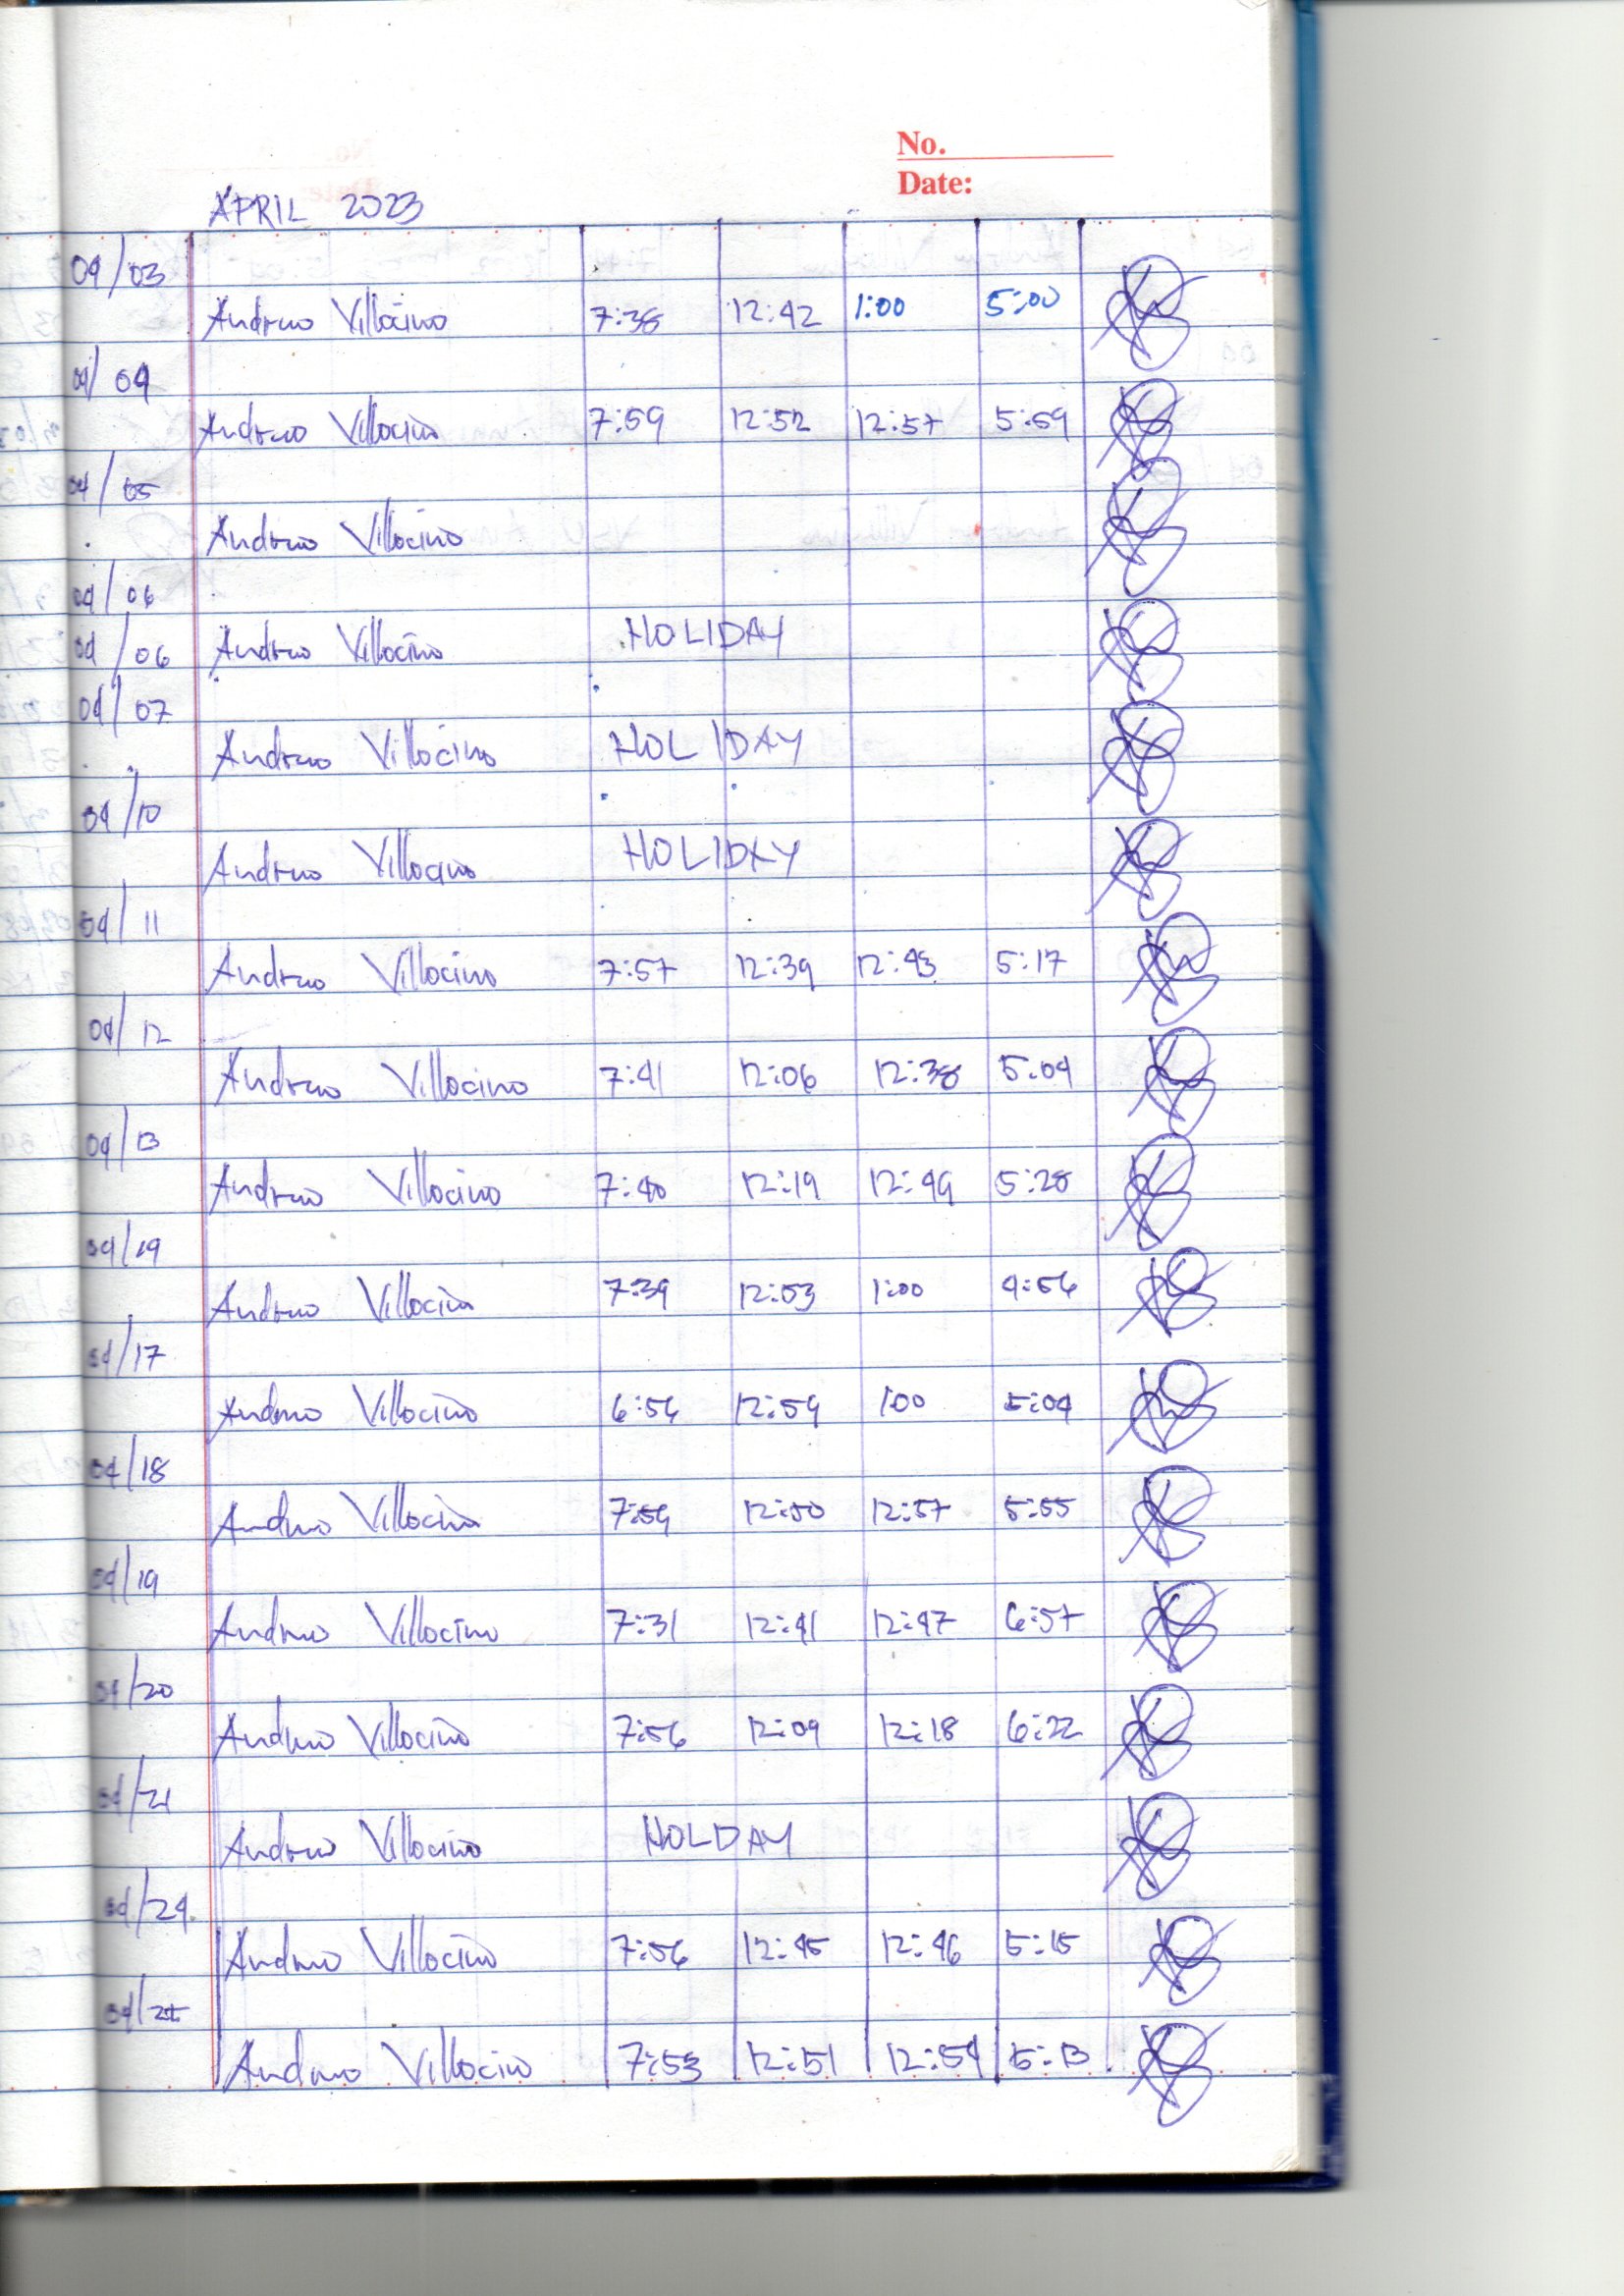 No.
Date:
APRIL 2023
04/03
Andrew Villocino 7:38 12:42 1:00 5:00
04/04
Andrew Villocino 7:59 12:52 12:57 5:59
04/05
Andrew Villocino
04/06
04/06 Andrew Villocino HOLIDAY
04/07
Andrew Villocino HOLIDAY
04/10
Andrew Villocino HOLIDAY
04/11
Andrew Villocino 7:57 12:39 12:43 5:17
04/12
Andrew Villocino 7:41 12:06 12:38 5:04
04/13
Andrew Villocino 7:40 12:19 12:49 5:28
04/14
Andrew Villocino 7:39 12:53 1:00 4:56
04/17
Andrew Villocino 6:56 12:59 1:00 5:04
04/18
Andrew Villocino 7:59 12:50 12:57 5:55
04/19
Andrew Villocino 7:31 12:41 12:47 6:57
04/20
Andrew Villocino 7:56 12:09 12:18 6:22
04/21
Andrew Villocino HOLDAY
04/24
Andrew Villocino 7:56 12:45 12:46 5:15
04/25
Andrew Villocino 7:53 12:51 12:54 5:13